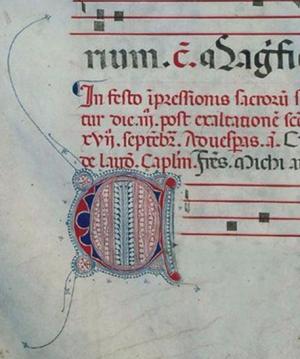 rium. c̄. Magfi
In festo īpressionis sacrorū s
tur die. iii. post exaltationē sc̄
xvii. septēbr̄. Ad vesperas. a.
de laud̄. Caplm̄. Frēs. Michi a